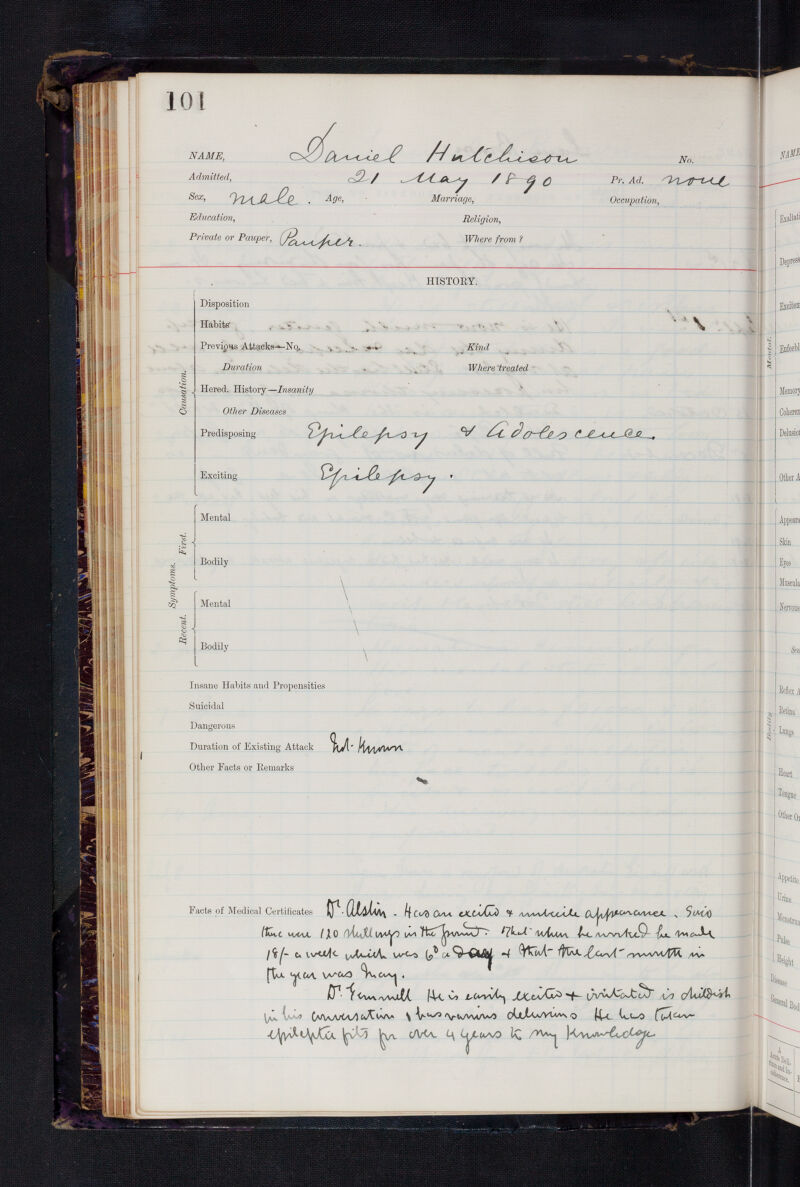 101
NAME, Daniel Hutchison No.
Admitted, 21 May 1890 Pr. Ad. none
Sex, Male. Age, Marriage, Occupation,
Education, Religion,
Private or Pauper, Pauper. Where from ?
HISTORY.
Causation.
Disposition
Habits
Previous Attacks—No. Kind
Duration Where treated
Hered. History—Insanity
Other Diseases
Predisposing Epilepsy & Adolescence.
Exciting Epilepsy.
Symptoms.
First.
Mental
Bodily
Recent.
Mental
Bodily
Insane Habits and Propensities
Suicidal
Dangerous
Duration of Existing Attack Not Known
Other Facts or Remarks
Facts of Medical Certificates Dr. Alston - Has an excited & imbecile appearance. Said
there were 120 shillings in the pound. That when he worked he made
18/- a week which was 6d a day & that the last month in
the year was May.
Dr. Gemmell He is easily excited & irritated is childish
in his conversation & has various delusions He has taken
epileptic fits for over 4 years to my knowledge
NAME
Mental.
Exaltati
Depress
Excitem
Enfeebl
Memory
Coheren
Delusion
Other A
Bodily
Appeara
Skin
Eyes
Muscula
Nervous
Sen
Reflex A
Retina
Lungs
Heart
Tongue
Other Or
Appetite
Urine
Menstrua
Pulse
Height
Disease
General Bod